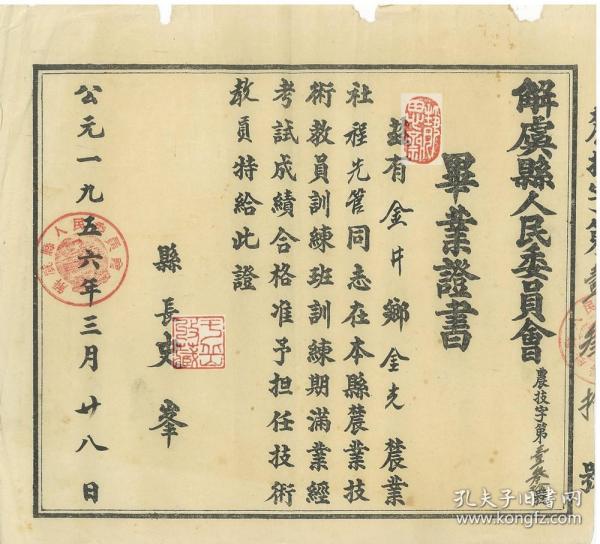 解虞縣人民委員會
農技字第壹叁號
畢業證書
茲有金井鄉金光農業
社程先管同志在本縣農業技
術教員訓練班訓練期滿業經
考試成績合格准予担任技術
教員特給此證
縣長史峯
公元一九五六年三月廿八日
孔夫子旧书网
www.kongfz.com